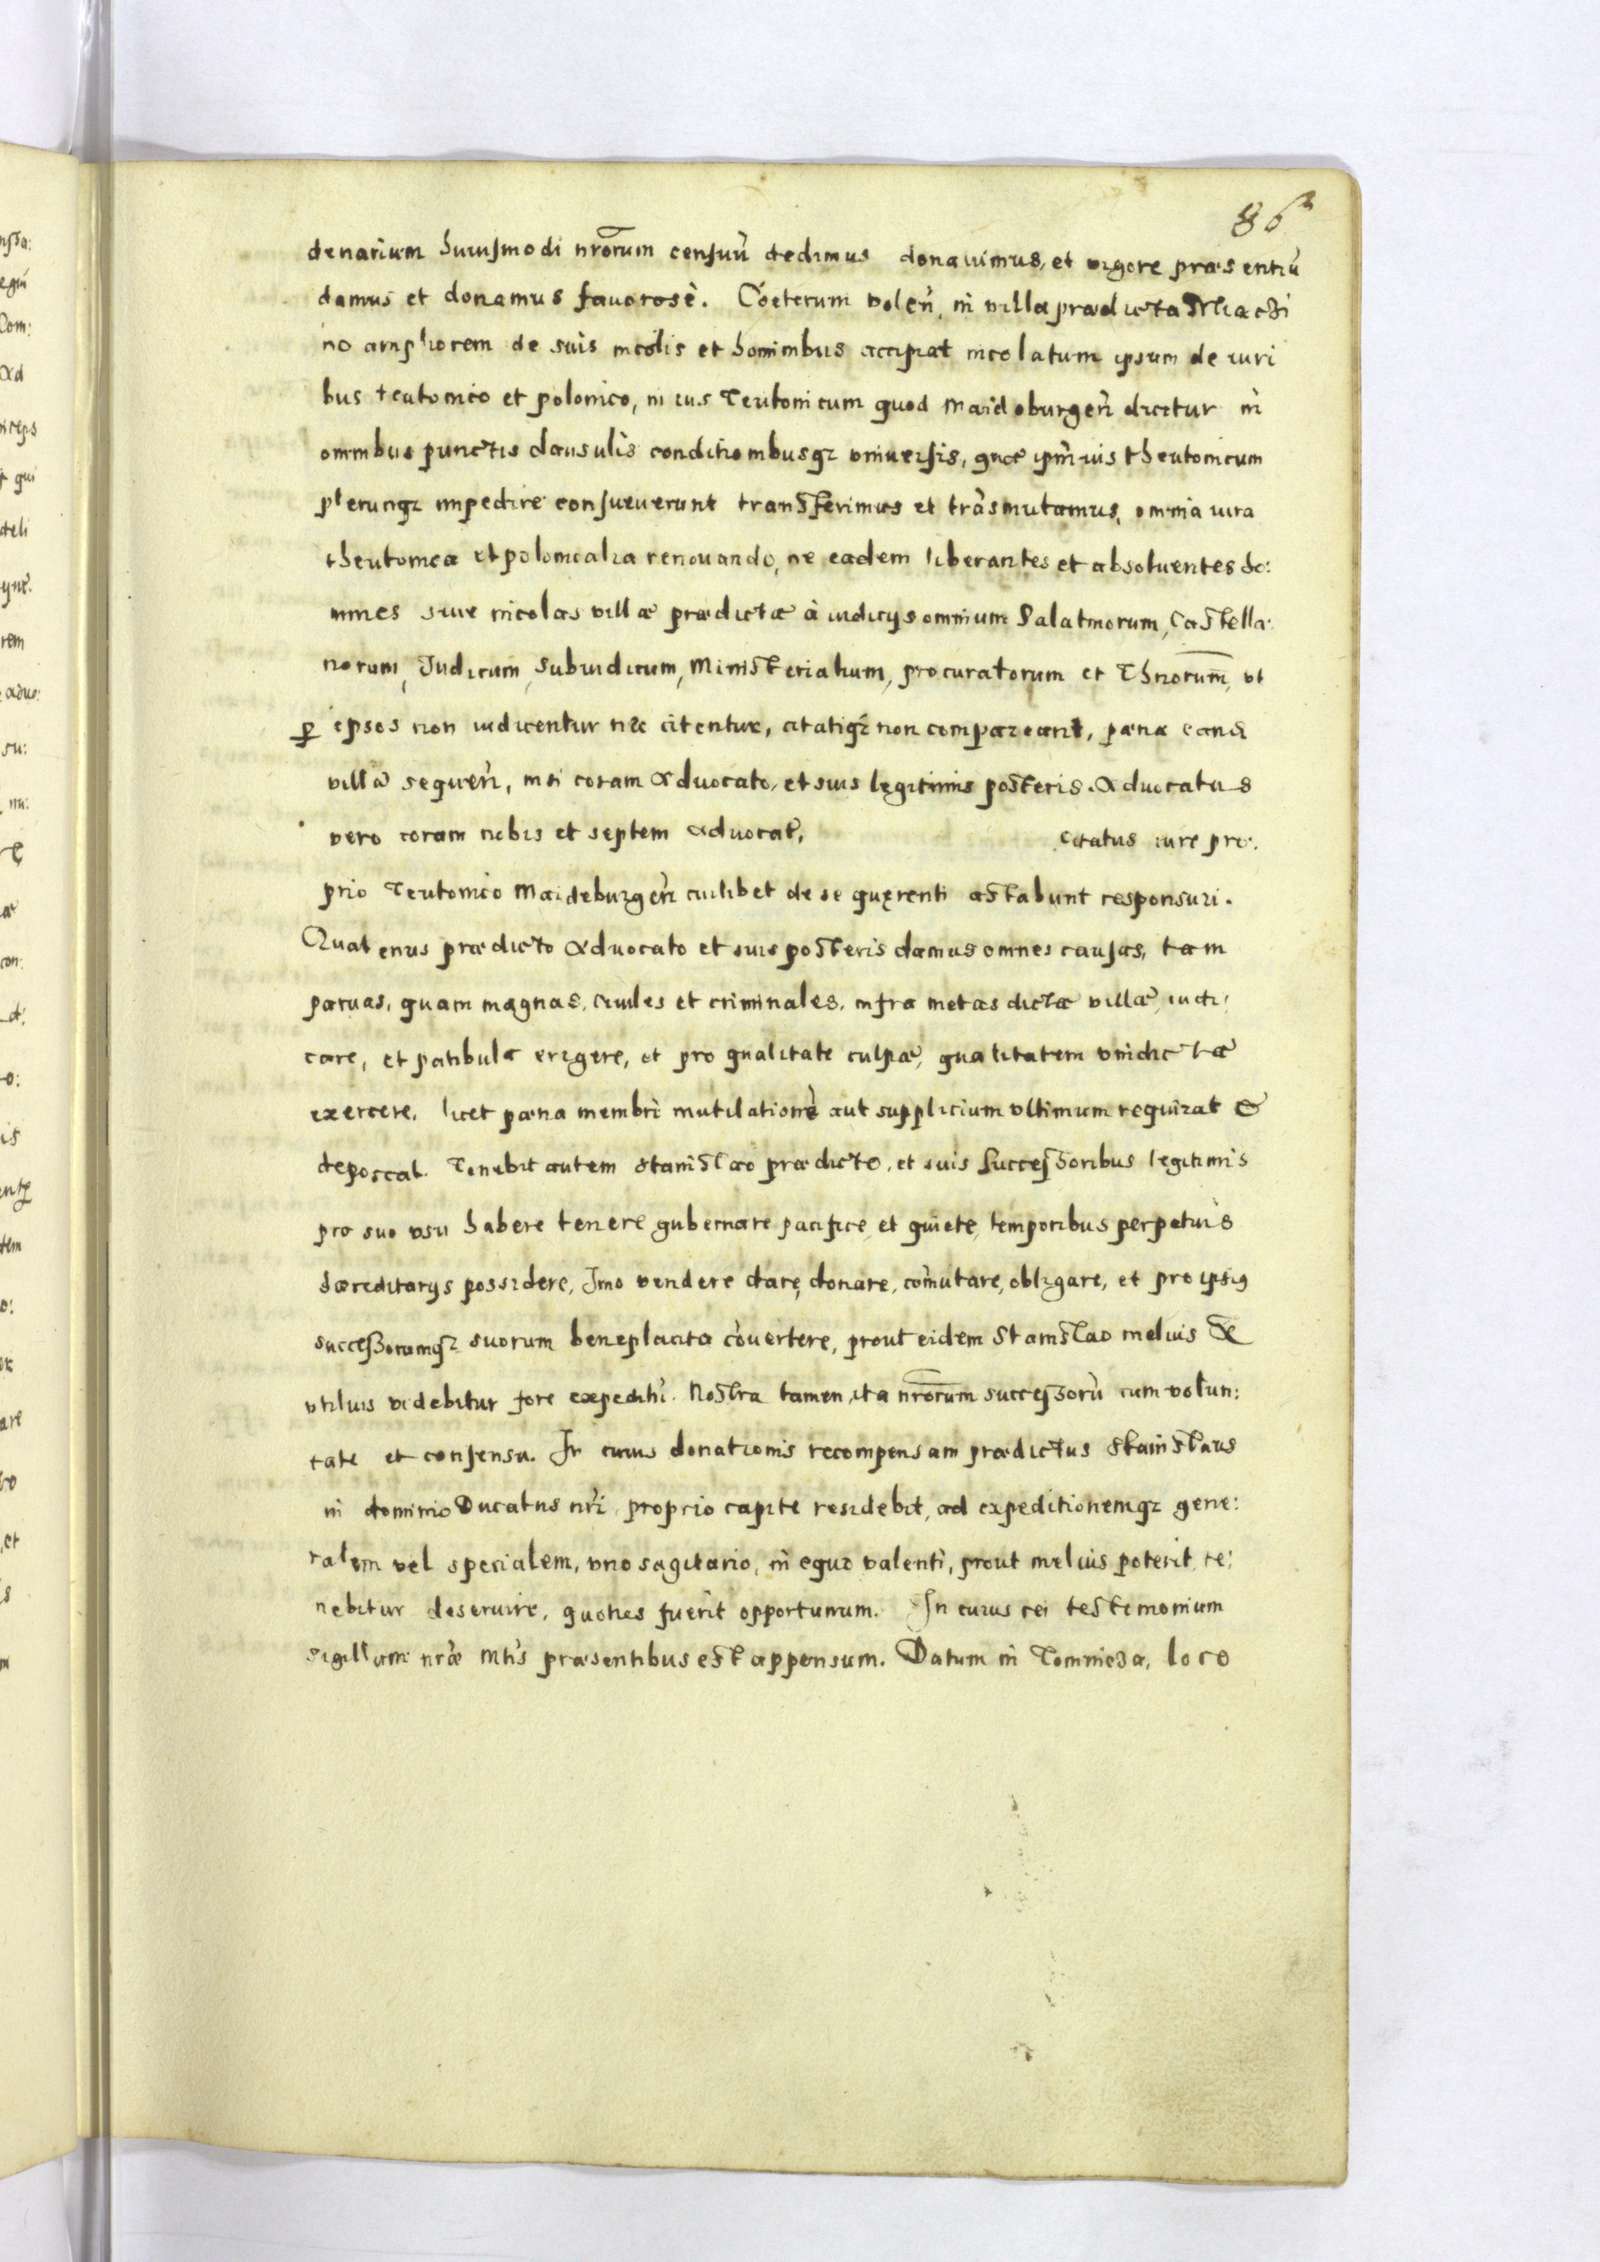 86
denarium huiusmodi nrorum censuũ dedimus donauimus, et vigore præsentiũ
damus et donamus fauorosè. Cœterum voleñ, in villa prædicta
no ampliorem de suis incolis et hominibus accipiat incolatum ipsum de iuri
bus teutonico et polonico, in ius Teutonicum quod Maidoburgeñ dicitur in
omnibus punctis clausulis conditionibusqz vniuersis, quæ ipm̃ ius theutonicum
plerunqz impedire consueuerunt transferimus et trãsmutamus, omnia iura
theutonica et polonicalia renouando, ne eadem liberantes et absoluentes ho:
mines siue incolas villæ prædictæ à iudicijs omnium Palatinorum, Castella:
norum, Judicum, Subiudicum, Ministerialium, procuratorum et Thnorum, vt
ꝑ ipsos non iudicentur nec citentur, citatiqz non compareant, pæna
villã sequeñ, nisi coram Aduocato, et suis legitimis posteris. Aduocatus
vero coram nobis et septem aduocat, citatus iure pro:
prio Teutonico Maideburgeñ cuilibet de se quęrenti astabunt responsuri.
Quatenus prædicto Aduocato et suis posteris damus omnes causas, tam
paruas, quam magnas, ciuiles et criminales, infra metas dictæ villæ, iudi:
care, et patibula erigere, et pro qualitate culpæ, qualitatem vindictæ
exercere, licet pæna membri mutilationẽ aut supplicium vltimum requirat &
deposcat. Tenebit autem Stanislao prædicto, et suis successoribus legitimis
pro suo vsu habere tenere gubernare pacifice et quiete, temporibus perpetuis
hæreditarijs possidere, Imo vendere dare, donare, cõmutare, obligare, et pro ipsius
successorumqz suorum beneplacito cõuertere, prout eidem Stanislao melius &
vtilius videbitur fore expediri. Nostra tamen, ita nrorum successorũ cum volun:
tate et consensu. In cuius donationis recompensam prædictus Stanislaus
in dominio Ducatus nr̃i, proprio capite residebit, ad expeditionemqz gene:
ralem vel specialem, vno sagitario, in equo valenti, prout melius poterit, te:
nebitur deseruire, quoties fuerit opportunum. In cuius rei testimonium
sigillum nr̃æ Mtis præsentibus est appensum. Datum in Tomnicza, loco